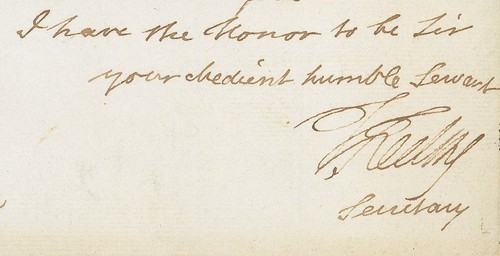 I have the Honor to be Sir
your obedient humble Servant
Secretary